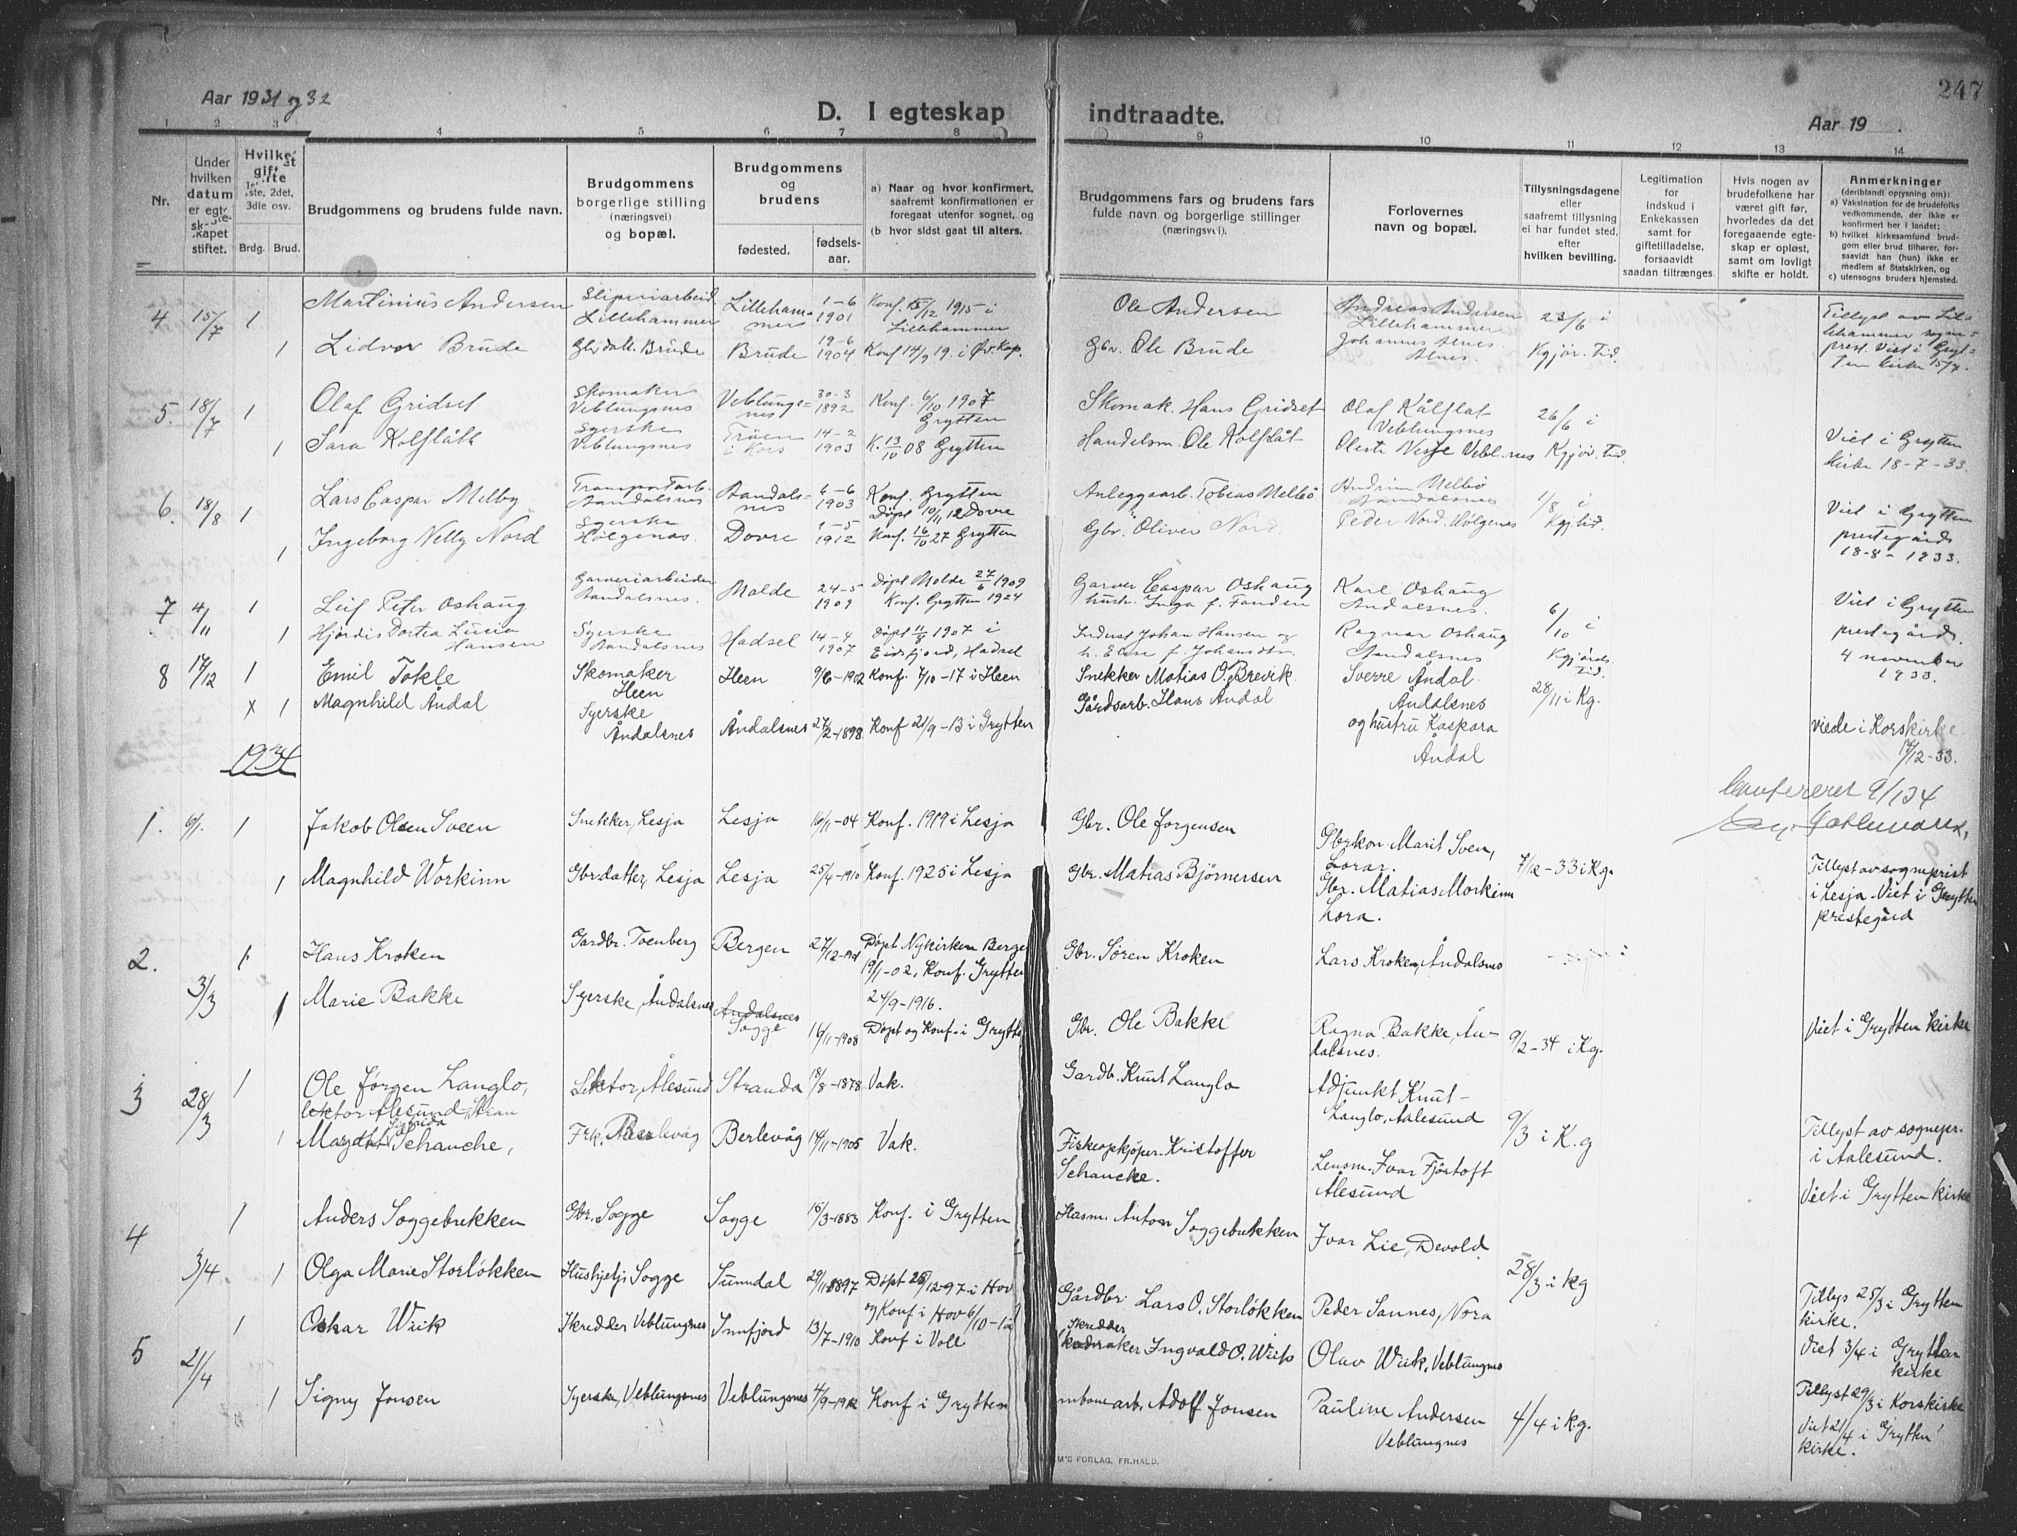 247
Aar 1931 og 32
D. I egteskap indtraadte.
Aar 19 .
1 2 3 4 5 6 7 8 9 10 11 12 13 14
Nr.
Under hvilken datum er egteskapet stiftet.
Hvilket gifte 1ste, 2det, 3dle osv.
Brdg. Brud.
Brudgommens og brudens fulde navn.
Brudgommens borgerlige stilling (næringsvei) og bopæl.
Brudgommens og brudens
fødested.
fødselsaar.
a) Naar og hvor konfirmert, saafremt konfirmationen er foregaat utenfor sognet, og
(b hvor sidst gaat til alters.
Brudgommens fars og brudens fars fulde navn og borgerlige stillinger (næringsvei).
Forlovernes navn og bopæl.
Tillysningsdagene eller saafremt tillysning ei har fundet sted, efter hvilken bevilling.
Legitimation for indskud i Enkekassen samt for giftetilladelse, forsaavidt saadan tiltrænges.
Hvis nogen av brudefolkene har været gift før, hvorledes da det foregaaende egteskap er opløst, samt om lovligt skifte er holdt.
Anmerkninger (deriblandt opysning om):
a) Vaksination for de brudefolks vedkommende, der ikke er konfirmert her i landet;
b) hvilket kirkesamfund brudgom eller brud tilhører, forsaavidt han (hun) ikke er medlem af Statskirken, og
c) utensogns bruders hjemsted.
4 15/7 1 Martinius Andersen Sliperiarbeid. Lillehammer Lillehammer 1-6 1901 Konf. 15/12 1915 i Lillehammer Ole Andersen Andreas Andersen Lillehammer 23/6 i
1 Lidvor Brude Gbrdatt. Brude Brude 19-6 1904 Konf 14/9 19. i Øv.Kap. Gbr. Ole Brude Johannes Kgjør. Tid.
Tillyst av Lillehammer sogneprest. Viet i Grytten kirke 15/7.
5. 18/7 1 Olaf Gridset Skomaker Veblungsnes Veblungsnes 30-3 1892 Konf. 6/10 1907 Grytten Skomak. Hans Gridset Olaf Kålflat Veblungsnes 26/6 i
1 Sara Kolflått Syerske Veblungsnes Trøen i Kors 14-2 1903 K. 13/10 08 Grytten Handelsm. Ole Kolflåt Veblnes Kgjør. Tid.
Viet i Grytten kirke 18-7-33.
6. 18/8 1 Lars Caspar Melby Transportarb. Aandalsnes Aandalsnes 6-6 1903 Konf. Grytten Anleggsarb. Tobias Melbø Melbø Aandalsnes 1/8 i
1 Ingeborg Nelly Nord Syerske Hølgenes Dovre 1-5 1912 Døpt 10/11 12 Dovre Konf. 16/10 27 Grytten Gbr. Oliver Nord Peder Nord. Hølgenes Kgj tid.
Viet i Grytten prestegård 18-8-1933.
7 4/11 1 Leif Peter Oshaug Garveriarbeider Aandalsnes. Molde 24-5 1909 Døpt Molde 27/6 1909 Konf. Grytten 1924 Garver Caspar Oshaug hustr. Inga f. Fanden Karl Oshaug Aandalsnes. 6/10 i
1 Hjørdis Dortea Lucia Hansen Syerske Aandalsnes Hadsel 14-4 1907 Døpt 11/8 1907 i Eidsfjord, Hadsel Johan Hansen og Ragnar Oshaug Aandalsnes Kgjørds Tid.
Viet i Grytten prestegård. 4 november 1933.
8 17/12 1 Emil Tokle Skomaker Heen Heen 9/6-1902 Konf. 7/10-17 i Heen Snekker Matias O. Brevik Sverre Åndal. Åndalsnes 28/11 i Kg.
x 1 Magnhild Åndal Syerske Åndalsnes Åndalsnes 27/2-1898 Konf 21/9-13 i Grytten Gårdsarb. Hans Åndal og hustru Kaspara Åndal
viede i Korskirke 17/12-33.
1934
Confereret 9/1 34
1. 6/1. 1 Jakob Olsen Sveen Snekker, Lesja Lesja 16/11-04 Konf. 1919 i Lesja Gbr. Ole Jørgensen Gbrkon. Marit Sven, Lorar.
1 Magnhild Workinn Gbrdatter, Lesja Lesja 25/4-1910 Konf. 1925 i Lesja Gbr. Matias Bjørnersen Gbr. Matias Morkinn Lora. 7/12-33 i Kg.
Tillyst av sogneprist i Lesja. Viet i Grytten prestegård
2. 3/3 1 Hans Kroken Gardbr. Toenberg Bergen 27/12-1901 Døpt Nykirken Bergen 19/1-02. Konf. Grytten 24/9-1916. Gbr. Søren Kroken Lars Kroken, Åndalsnes
1 Marie Bakke Syerske, Åndalsnes Åndalsnes Sogge 16/11-1908 Døpt og Konf. i Grytten Gbr. Ole Bakke Ragna Bakke, Åndalsnes. 9/2-34 i Kg.
Viet i Grytten kirke
3 28/3 1 Ole Jørgen Langlo, lektor Ålesund Lektor, Ålesund Stranda 18/8-1878 Vak. Gardb. Knut Langlo Adjunkt Knut Langlo, Aalesund 9/3 i K.g
1 Schancke, Frk. Berlevåg Berlevåg 14/11-1905 Vak. Fiskeopkjøper. Kristoffer Schancke. Lensm. Ivar Fjørtoft Ålesund
Tillyst av sognepr. i Aalesund. Viet i Grytten kirke
4 3/4 1 Anders Soggebekken Gbr. Sogge Sogge 15/3-1883 Konf. i Grytten Husm. Anton Soggebekken Ivar Lie, Devold
1 Olga Marie Storløkken Hushjelp Sogge Sunndal 29/11 1897 Døpt 26/12-97 i Hov og Konf i Hov 6/10-12 Gårdbr. Lars O. Storløkken Peder Sannes, Nora 28/3 i kg
Tillys 25/3 i Grytten kirke. Viet 3/4 i Grytten kirke
5 21/4 1 Oskar Wiik Skredder Veblungsnes Innfjord 13/7-1910 Konf i Voll Skredder Ingvald O. Wiik Olav Wiik, Veblungsnes
1 Signy Jonsen Syerske, Veblungsnes Veblungsnes 4/9-1912 Konf i Grytten arb. Adolf Jonsen Pauline Andersen Veblungsnes 4/4 i Kg.
Tillyst 29/3 i Korskirke Viet 21/4 i Grytten kirke.
M'S FORLAG, FR.HALD.